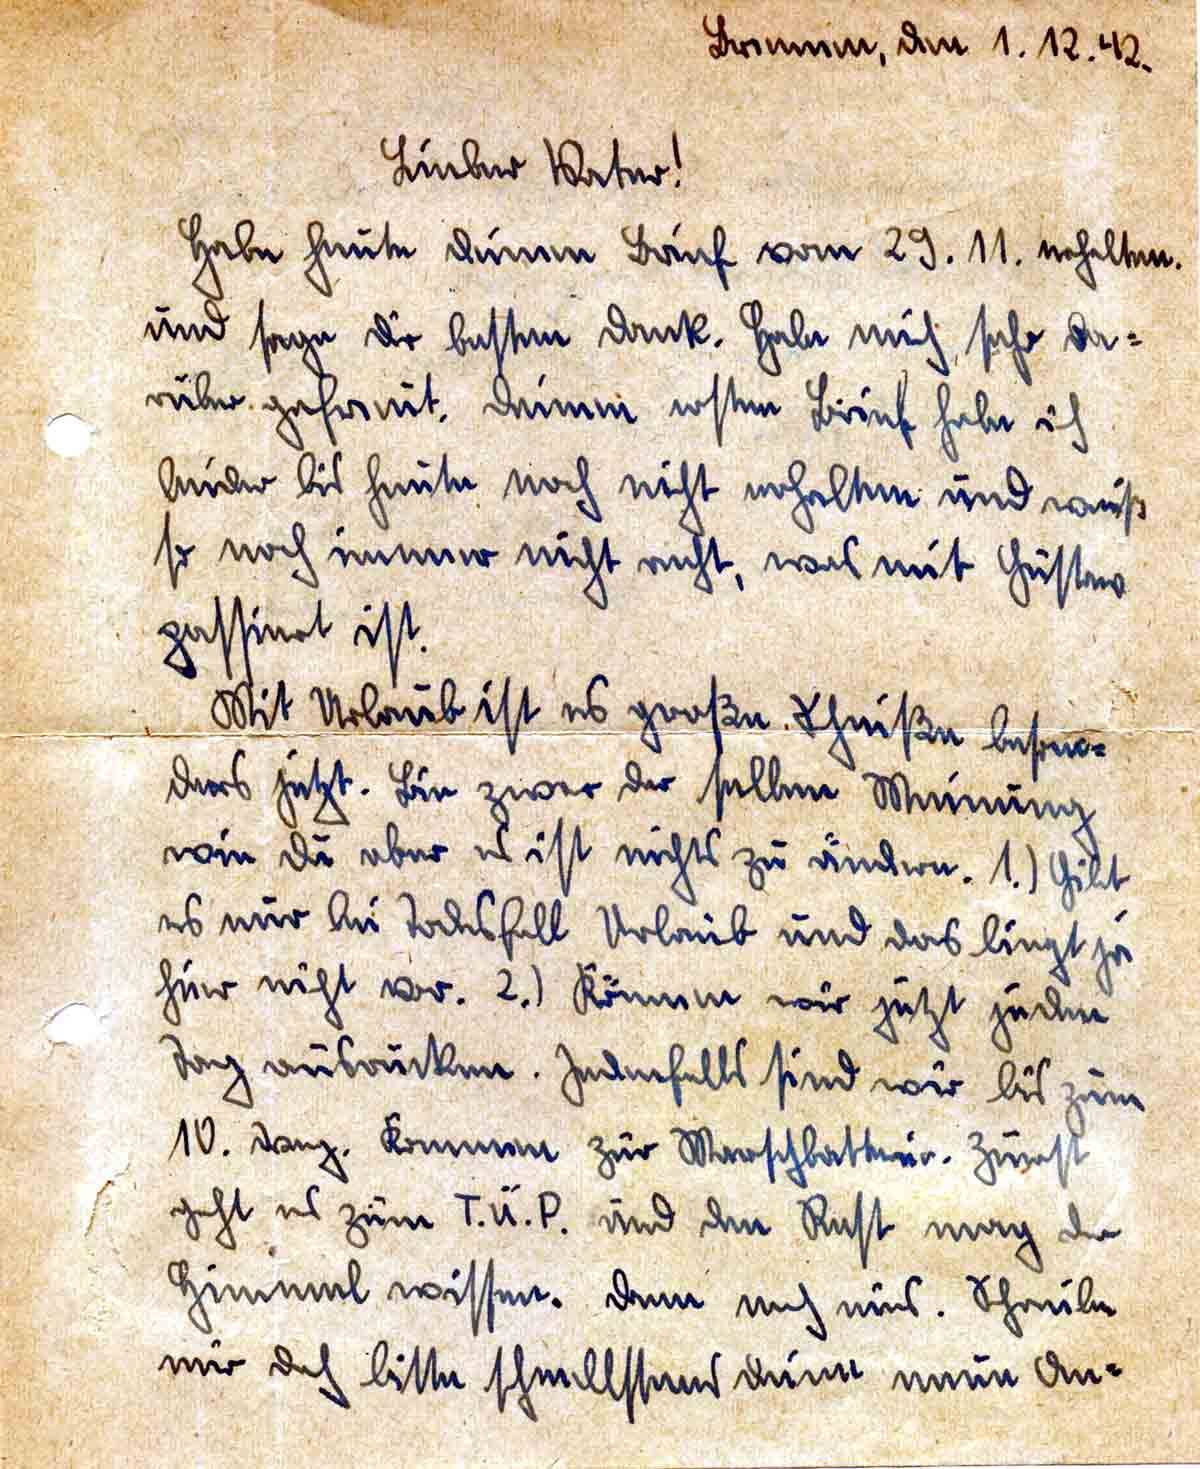 Bremen, den 1. 12. 42.
Lieber Vater!
Habe heute deinen Brief vom 29. 11. erhalten.
und sage dir besten Dank. Habe mich sehr da=
rüber gefreut. Deinen ersten Brief habe ich
leider bis heute noch nicht erhalten und weiß
so noch immer nicht recht, was mit Gustav
passiert ist.
Mit Urlaub ist es große Scheiße beson=
ders jetzt. Bin zwar der selben Meinung
wie du aber es ist nichts zu ändern. 1.) Gibt
es nur bei Todesfall Urlaub und das liegt ja
hier nicht vor. 2.) Können wir jetzt jeden
Tag ausrücken. Jedenfalls sind wir bis zum
10. weg. Kommen zur Marschbatterie. Zuerst
geht es zum T.Ü.P. und den Rest mag der
Himmel wissen. Denn mch nies. Schreibe
mir doch bitte schnellstens deine neue An=